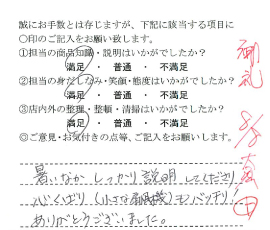 誠にお手数とは存じますが、下記に該当する項目に
○印のご記入をお願い致します。
①担当の商品知識・説明はいかがでしたか？
満足 ・ 普通 ・ 不満足
②担当の身だしなみ・笑顔・態度はいかがでしたか？
満足 ・ 普通 ・ 不満足
③店内外の整理・整頓・清掃はいかがでしたか？
満足 ・ 普通 ・ 不満足
◎ご意見・お気付きの点等、ご記入をお願いします。
暑いなか しっかり説明してくださり
心くばり(小さな親切)もバッチリ!
ありがとうございました。
御礼